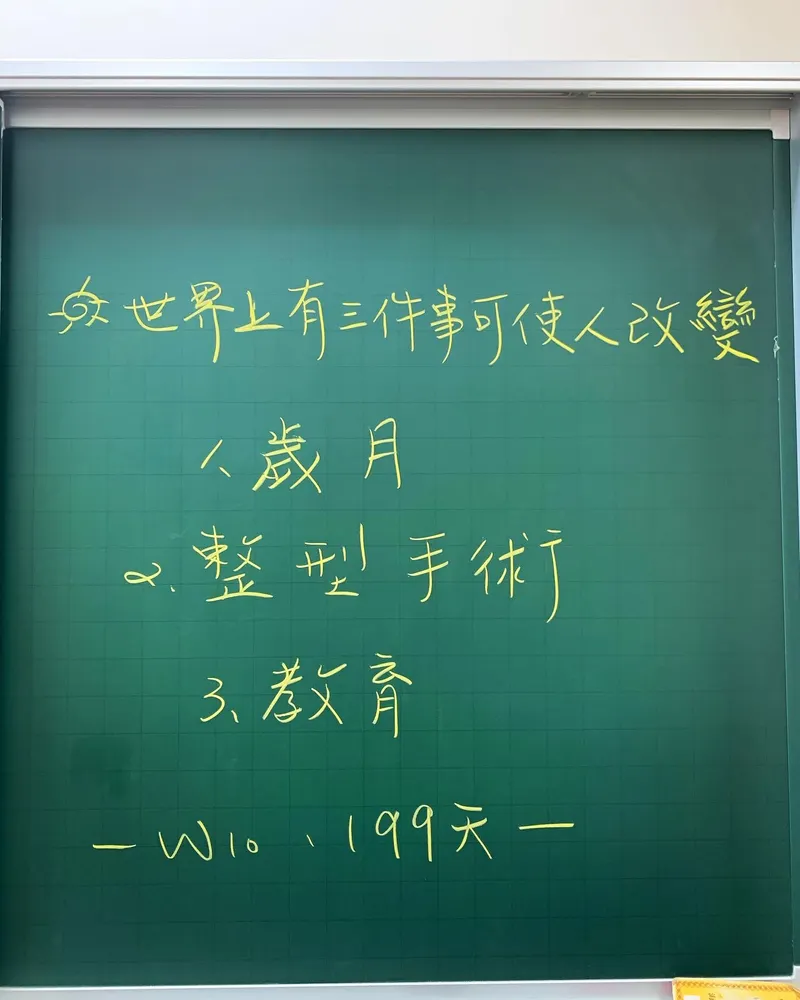 世界上有三件事可使人改變
1、歲月
2.整型手術
3、教育
—W10、199天—